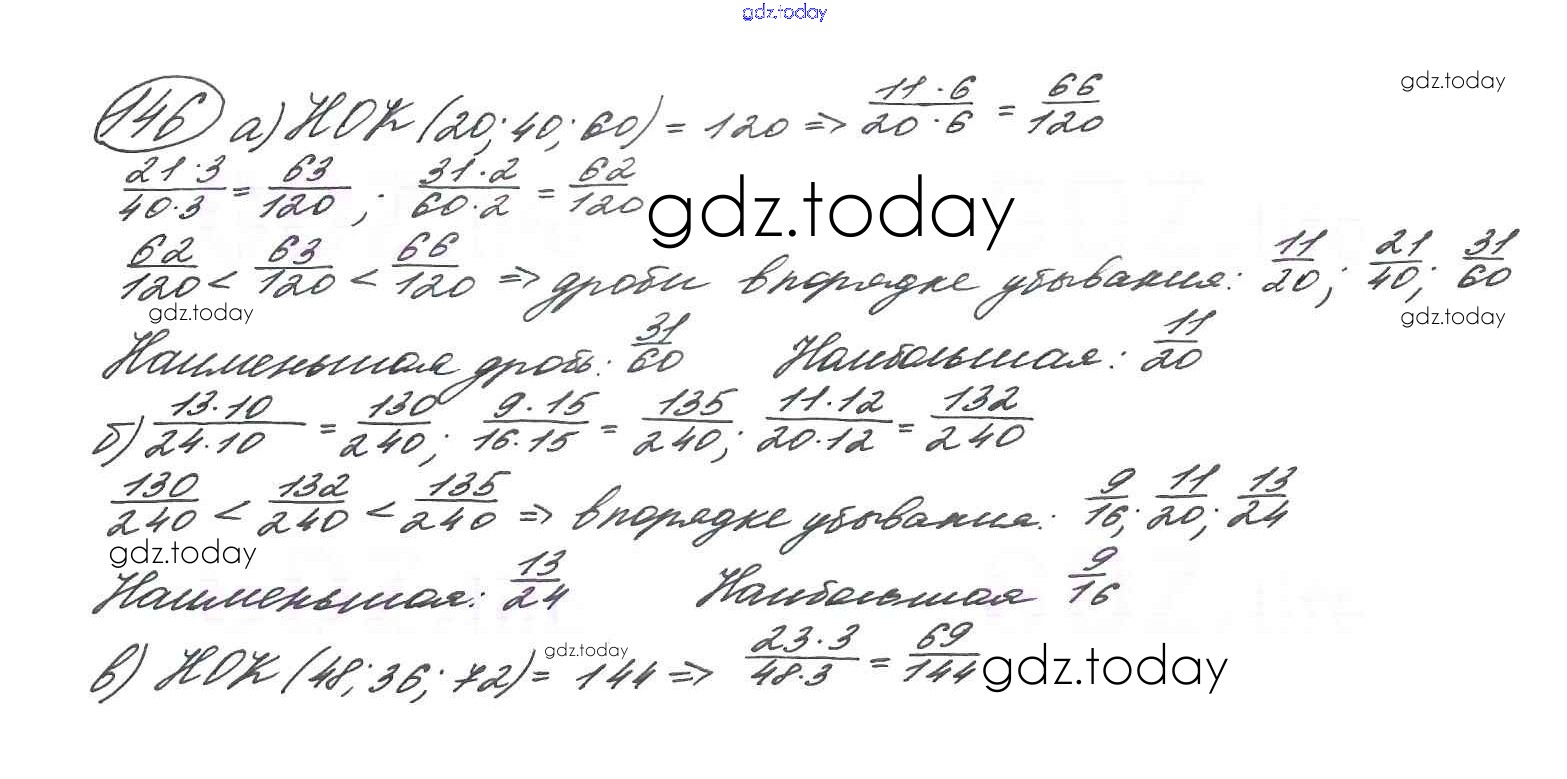 gdz.today
gdz.today
146 а) НОК (20; 40; 60) = 120 => 11·6/20·6 = 66/120
21·3/40·3 = 63/120 ; 31·2/60·2 = 62/120
gdz.today
62/120 < 63/120 < 66/120 => дроби в порядке убывания: 11/20; 21/40; 31/60
gdz.today
gdz.today
Наименьшая дробь: 31/60 Наибольшая: 11/20
б) 13·10/24·10 = 130/240; 9·15/16·15 = 135/240; 11·12/20·12 = 132/240
130/240 < 132/240 < 135/240 => в порядке убывания: 9/16; 11/20; 13/24
gdz.today
Наименьшая: 13/24 Наибольшая 9/16
gdz.today
в) НОК (48; 36; 72) = 144 => 23·3/48·3 = 69/144
gdz.today